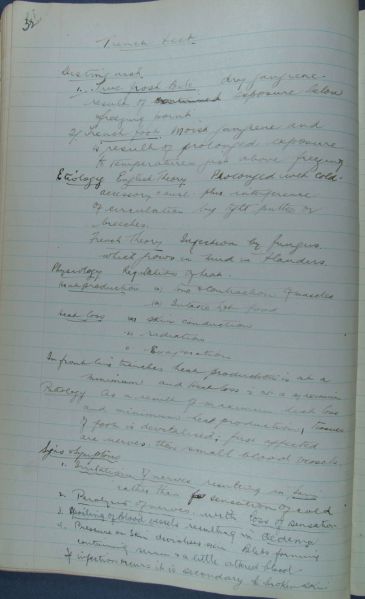 32
Trench Feet.
Distinguish
1. True frost bite dry gangrene.
result of exposure below
freezing point.
2. Trench foot Moist gangrene and
is result of prolonged exposure
to temperatures just above freezing
Etiology English Theory Prolonged wet & cold.
accessory cause plus interference
of circulation by tight putties or
breeches.
French Theory Ingestion by fungus
which grows in mud in Flanders.
Physiology Regulation of heat.
Heat production contraction of muscles
hot food
Heat loss skin conduction
" radiation
" Evaporation
In front line trenches heat production is at a
minimum and heat loss is at a maximum
Pathology As a result of maximum heat loss
and minimum heat production, tissues
of foot is devitalised; first affected
are nerves then small blood vessels.
Signs & Symptoms
1. Irritation of nerves resulting in
rather than sensation of cold
2. Paralysis of nerves with loss of sensation
3. of blood vessels resulting in oedema
4. Pressure on skin Blebs forming
containing serum & a little altered blood.
If infection occurs it is secondary to broken skin